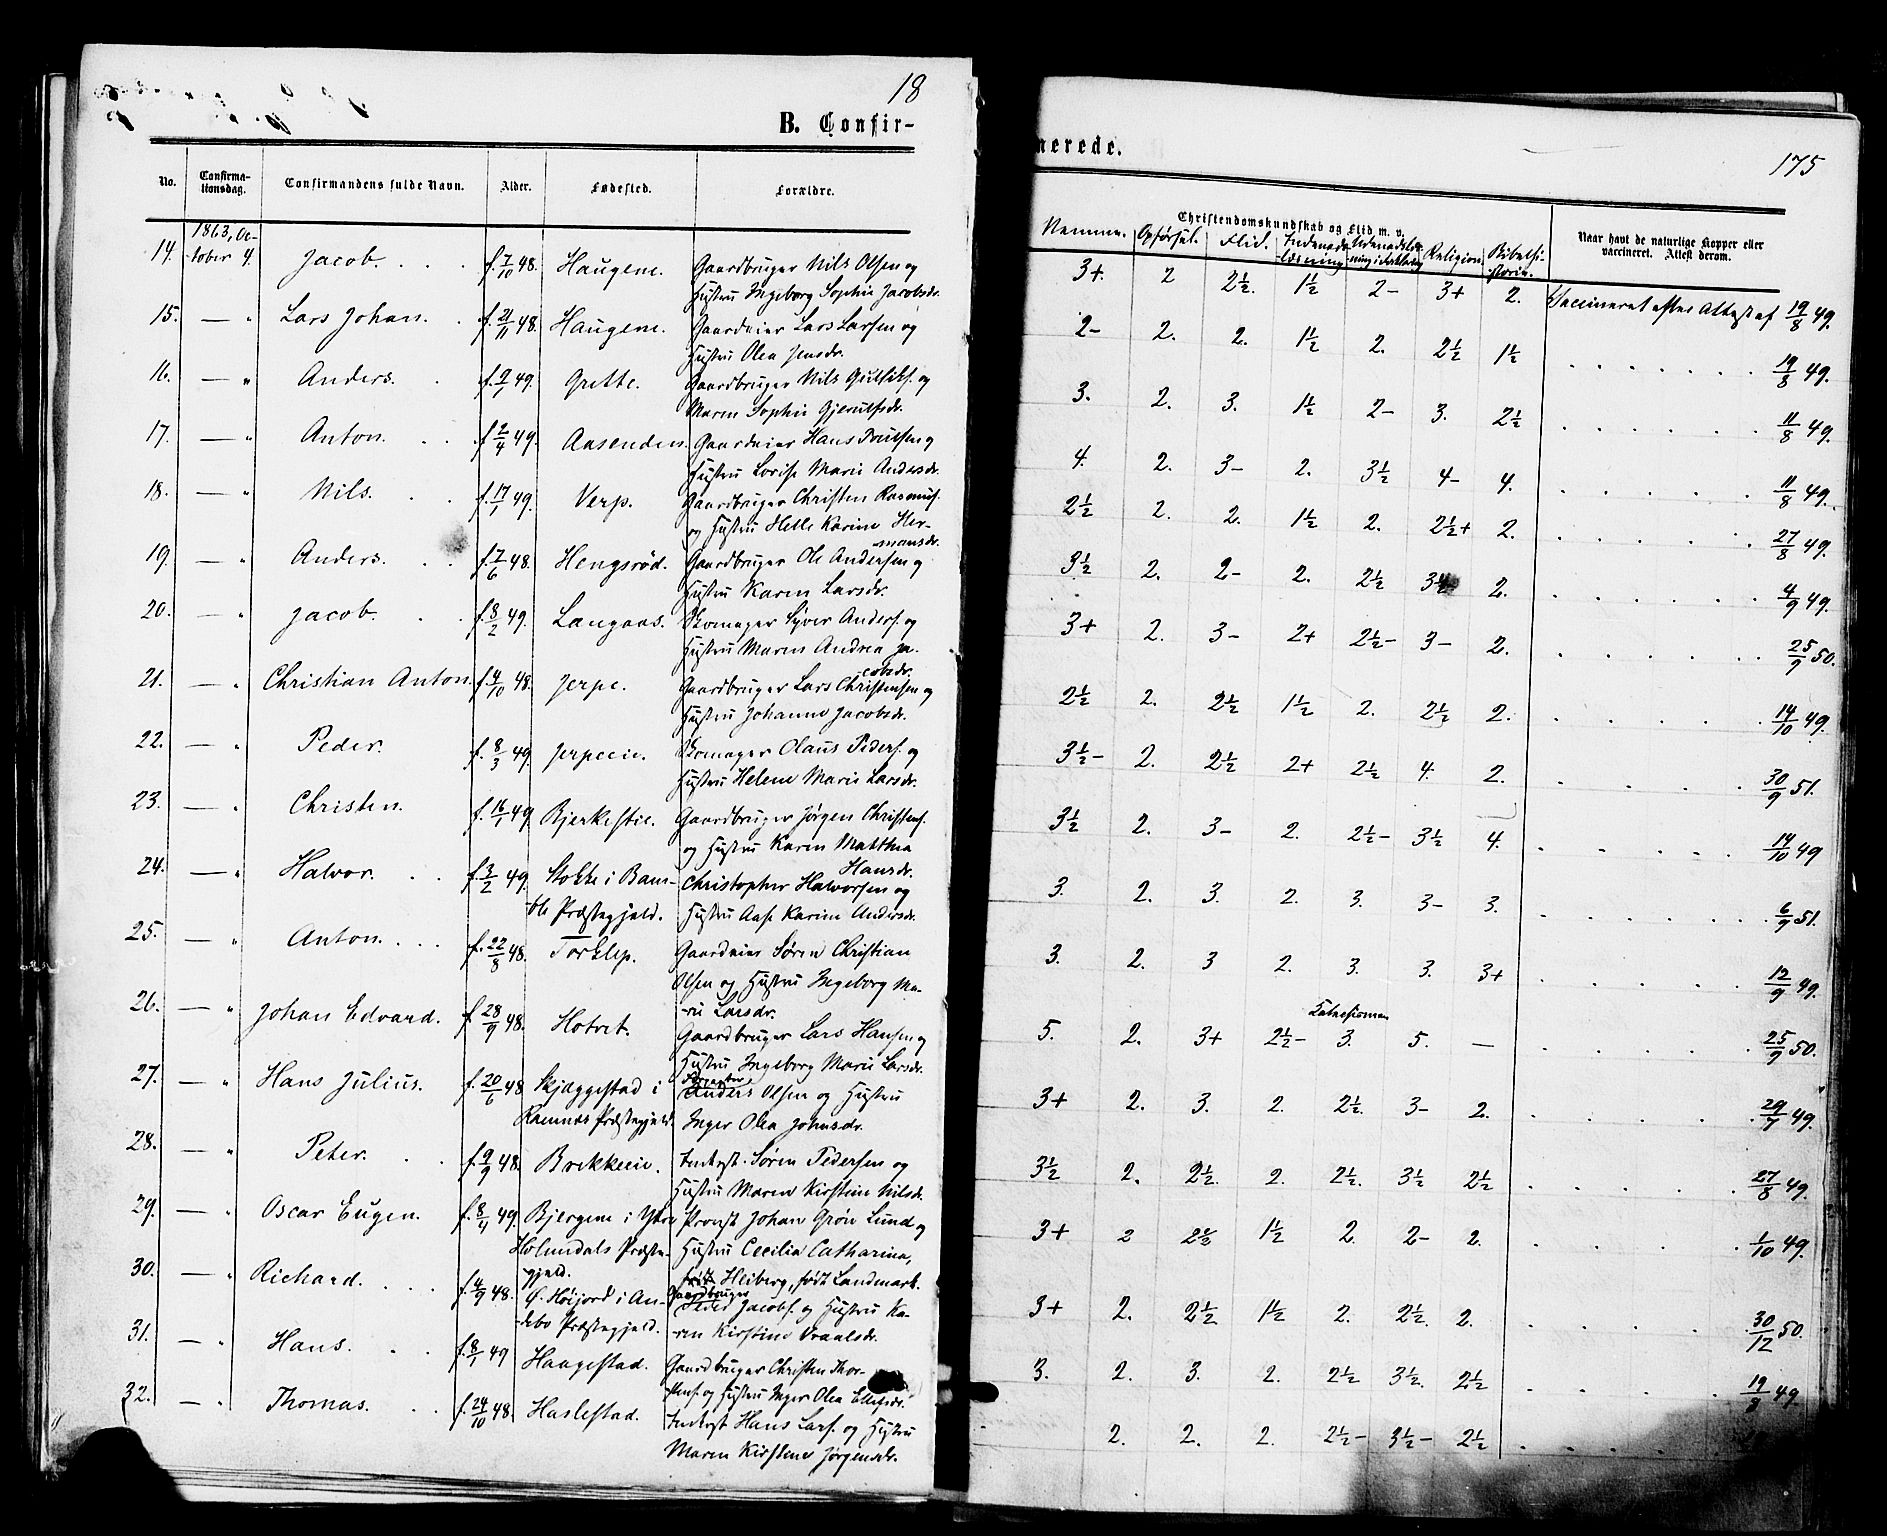 18
B. Confir-
No. Confirma-tionsdag. Confirmandens fulde Navn. Alder. Fødested. Forældre.
14. 1863, Oc-tober 4. Jacob. f. 7/10 48. Haugene. Gaardbruger Nils Olsen og
Hustru Ingeborg Sophie Jacobsdr.
15. — " Lars Johan. f. 21/11 48. Haugene. Gaardeier Lars Larsen og
Hustru Olea Jensdr.
16. — " Anders. f. 9/1 49. Grette. Gaardbruger Nils
Maren Sophie
17. — " Anton. f. 2/4 49. Aasenden. Gaardeier Hans og
Hustru Lovise Marie Andersdr.
18. — " Nils. f. 17/1 49. Verp. Gaardbruger Christen Rasmus.
og Hustru Helle Karine Her-
mansdr.
19. — " Anders. f. 7/6 48. Hengsrød. Gaardbruger Ole Andersen og
Hustru Karen Larsdr.
20. — " Jacob. f. 8/2 49. Langaas. Skomager Syver Anders. og
Hustru Maren Andrea Ja-
cobsdr.
21. — " Christian Anton. f. 4/10 48. Jerpe. Gaardbruger Lars Christensen og
Hustru Johanne Jacobsdr.
22. — " Peder. f. 8/3 49. Jerpeeie. Skomager Olaus Peders. og
Hustru Helene Marie Larsdr.
23. — " Christen. f. 16/1 49. Bjerkestie. Gaardbruger Jørgen Christens.
og Hustru Karen Mathea
Hansdr.
24. — " Halvor. f. 3/2 49. Stokke i Bam- Christopher Halvorsen og
ble Præstegjeld. Hustru Aase Karine Andersdr.
25. — " Anton. f. 22/8 48. Torklep. Gaardeier Søren Christian
Olsen og Hustru Ingeborg Ma-
rie Larsdr.
26. — " Johan Edvard. f. 28/9 48. Hotvet. Gaardbruger Lars Hansen og
Hustru Ingeborg Marie Larsdr.
27. — " Hans Julius. f. 20/6 48. Skjæggestad i Anders Olsen og Hustru
Ramnæs Præstegjeld. Inger Olea Johnsdr.
28. — " Peter. f. 9/9 48. Brekkeeie. Inderst. Søren Pedersen og
Hustru Maren Kirstine Nilsdr.
29. — " Oscar Eugen. f. 8/4 49. Bjergene i Ytre Provst Johan Grøn Lund og
Holmedals Præste- Hustru Cecilia Catharina,
gjeld. Heiberg, født Landmark.
30. — " Richard. f. 4/9 48. Ø. Høijord i An- Gaardbruger Peder Jacobs. og Hustru Ka-
debo Præstegjeld. ren Kirstine Vraalsdr.
31. — " Hans. f. 8/1 49 Haagestad. Gaardbruger Christen Thor-
stens. og Hustru Inger Olea Ellefsdr.
32. — " Thomas. f. 24/10 48. Haslestad. Inderst Hans Lars. og Hustru
Maren Kirstine Jørgensdr.
nerede.
175
Christendomskundskab og Flid m. v.
Nemme. Opførsel. Flid. Indenads-læsning. Udenadslæs-ning i Religion. Bibelhi-storie. Naar havt de naturlige Kopper eller vaccineret. Attest derom.
3+. 2 2½. 1½ 2- 3+ 2. Vaccineret efter Attest af 19/8 49.
2- 2. 2. 1½ 2. 2½ 1½ 19/8 49.
3. 2. 3. 1½ 2- 3. 2½ 11/8 49.
4. 2. 3- 2. 3½ 4- 4. 11/8 49.
2½ 2. 2. 1½ 2. 2½+ 2. 27/8 49.
3½ 2. 2- 2. 2½ 2. 4/9 49.
3+ 2. 3- 2+ 2½- 3- 2. 25/9 50.
2½ 2. 2½ 1½ 2. 2½ 2. 14/10 49.
3½- 2. 2½ 2+ 2½ 4. 2. 30/9 51.
3½ 2. 3- 2. 2½- 3½ 4. 14/10 49
3. 2. 3. 2. 3. 3- 3. 6/9 51.
3. 2. 3 2. 3. 3. 3+ 12/9 49.
5. 2. 3+ 2½- 3. 5. — 25/9 50.
3+ 2. 3. 2. 2½. 3- 2. 29/7 49.
3½ 2. 2½. 2. 2½. 3½ 2½ 27/8 49.
3+ 2 2½ 1½ 2. 2- 2. 1/10 49.
3+ 2. 2½ 1½ 2. 2½. 2. 30/12 50.
3. 2. 3. 2. 2½ 3½. 2½ 19/8 49.
2. 2. 2. 2½- 3½- 2½